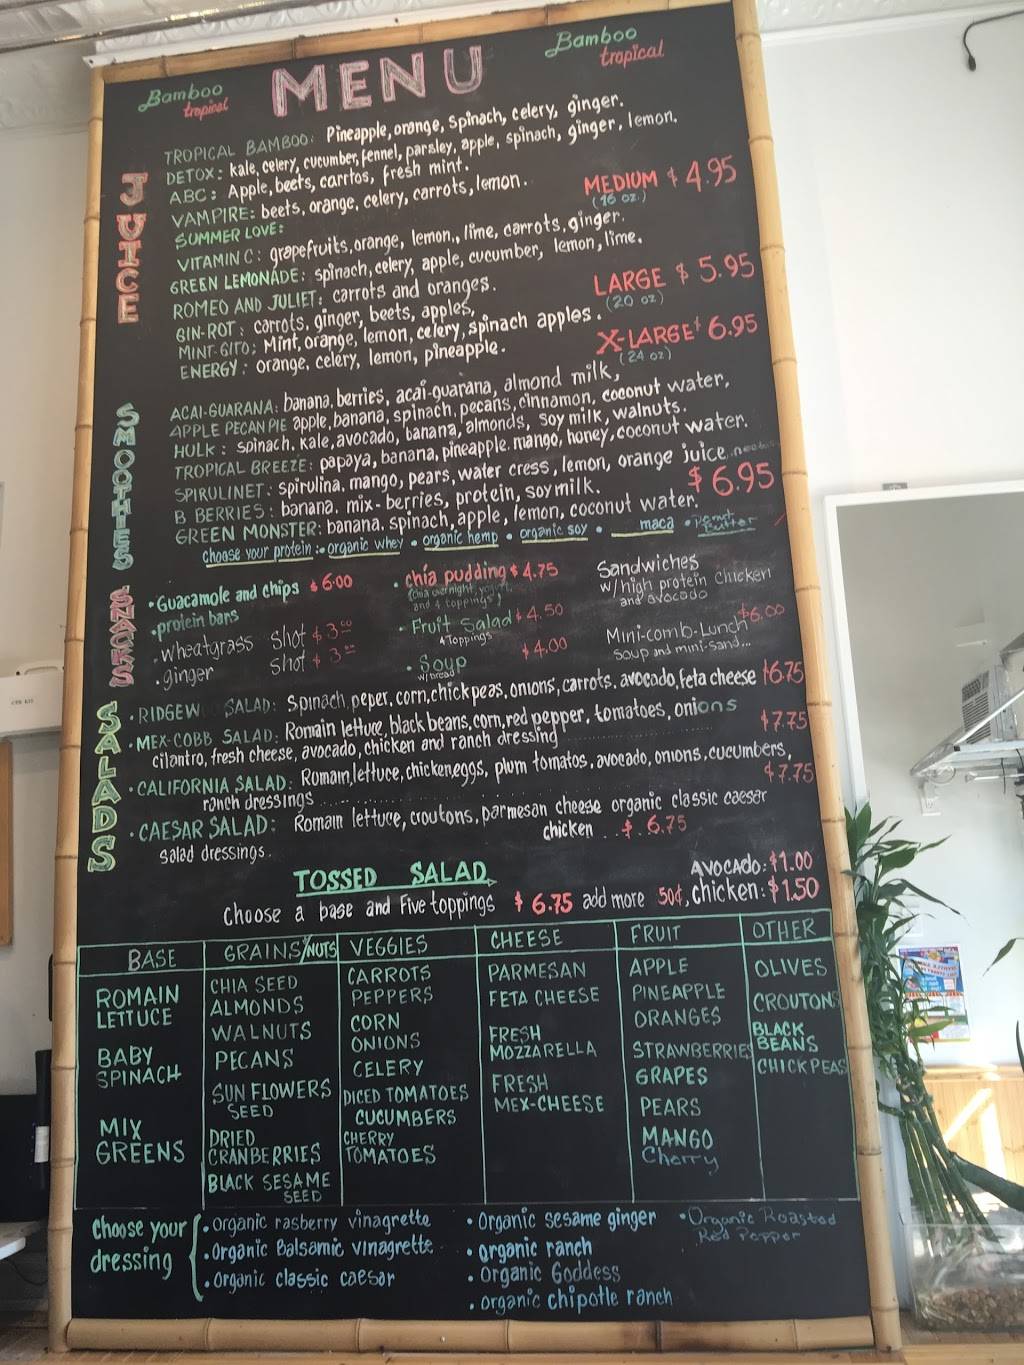 Bamboo
tropical
MENU
Bamboo
tropical
JUICE
TROPICAL BAMBOO: Pineapple, orange, spinach, celery, ginger.
DETOX: kale, celery, cucumber, fennel, parsley, apple, spinach, ginger, lemon.
ABC: Apple, beets, carrtos, fresh mint.
VAMPIRE: beets, orange, celery, carrots, lemon.
MEDIUM $4.95
(16 oz.)
SUMMER LOVE:
VITAMIN C: grapefruits, orange, lemon, lime, carrots, ginger.
GREEN LEMONADE: spinach, celery, apple, cucumber, lemon, lime.
ROMEO AND JULIET: carrots and oranges.
LARGE $5.95
(20 oz)
GIN-ROT: carrots, ginger, beets, apples,
MINT-GITO: Mint, orange, lemon, celery, spinach apples.
ENERGY: orange, celery, lemon, pineapple.
X-LARGE $6.95
(24 oz)
SMOOTHIES
ACAI-GUARANA: banana, berries, acai-guarana, almond milk,
APPLE PECAN PIE apple, banana, spinach, pecans, cinnamon, coconut water,
HULK: spinach, kale, avocado, banana, almonds, soy milk, walnuts.
TROPICAL BREEZE: papaya, banana, pineapple, mango, honey, coconut water.
SPIRULINET: spirulina, mango, pears, water cress, lemon, orange juice
B BERRIES: banana, mix-berries, protein, soymilk.
$6.95
GREEN MONSTER: banana, spinach, apple, lemon, coconut water.
choose your protein: • organic whey • organic hemp • organic soy • maca • Peanut Butter
SNACKS
• Guacamole and chips $6.00
• protein bars
• Wheatgrass shot $3.00
• ginger shot $3.00
• chia pudding $4.75
(chia overnight, yogurt, and 4 toppings)
• Fruit Salad $4.50
4 Toppings
• Soup $4.00
w/bread
Sandwiches
w/high protein chicken
and avocado
$6.00
Mini-comb-Lunch
Soup and mini-sand...
SALADS
• RIDGEW SALAD: Spinach, peper, corn, chickpeas, onions, carrots, avocado, feta cheese $6.75
• MEX-COBB SALAD: Romain lettuce, black beans, corn, red pepper, tomatoes, onions
cilantro, fresh cheese, avocado, chicken and ranch dressing $7.75
• CALIFORNIA SALAD: Romain, lettuce, chicken, eggs, plum tomatos, avocado, onions, cucumbers,
ranch dressings $7.75
• CAESAR SALAD: Romain lettuce, croutons, parmesan cheese organic classic caesar
salad dressings. chicken $6.75
TOSSED SALAD
AVOCADO: $1.00
Choose a base and Five toppings $6.75 add more 50¢, chicken: $1.50
BASE
ROMAIN
LETTUCE
BABY
SPINACH
MIX
GREENS
GRAINS/NUTS
CHIA SEED
ALMONDS
WALNUTS
PECANS
SUN FLOWERS
SEED
DRIED
CRANBERRIES
BLACK SESAME
SEED
VEGGIES
CARROTS
PEPPERS
CORN
ONIONS
CELERY
DICED TOMATOES
CUCUMBERS
CHERRY
TOMATOES
CHEESE
PARMESAN
FETA CHEESE
FRESH
MOZZARELLA
FRESH
MEX-CHEESE
FRUIT
APPLE
PINEAPPLE
ORANGES
STRAWBERRIES
GRAPES
PEARS
MANGO
Cherry
OTHER
OLIVES
CROUTONS
BLACK
BEANS
CHICKPEAS
Choose your
dressing
• Organic rasberry vinagrette
• Organic Balsamic vinagrette
• Organic classic caesar
• Organic sesame ginger
• organic ranch
• Organic Goddess
• organic chipotle ranch
• Organic Roasted
Red Pepper